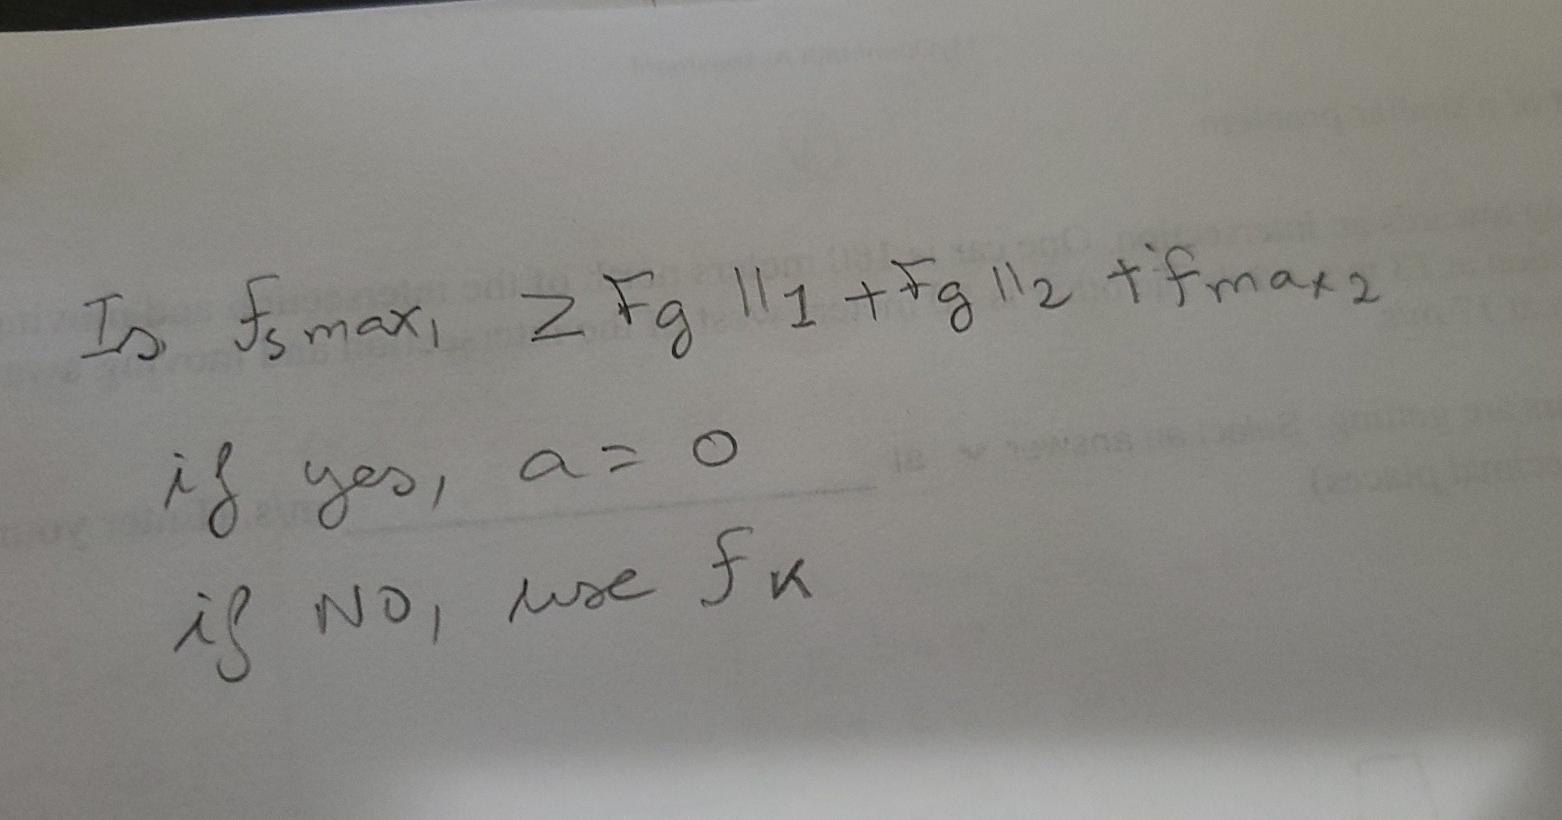 Is fs max₁ ≥ Fg ||₁ + Fg ||₂ + f max₂
if yes, a = 0
if NO, use fK